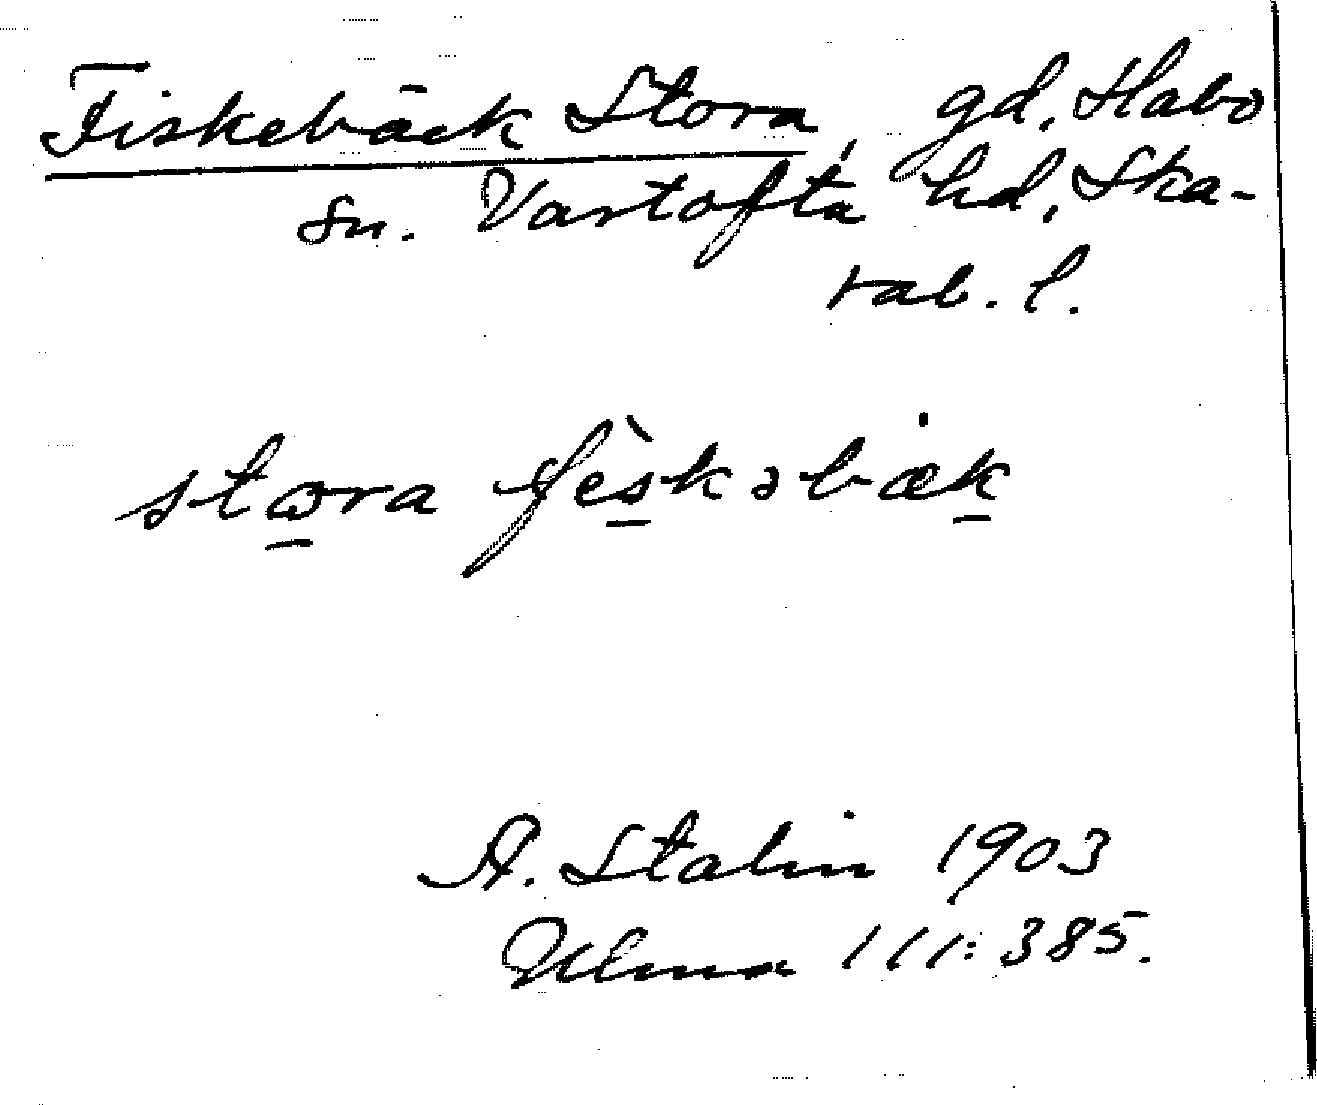 Fiskebäck Stora, gd, Habo
sn. Vartofta hd, Ska-
rab. l.
stɷra fèskəbæk
A. Stalin 1903
Ulma 111:385.